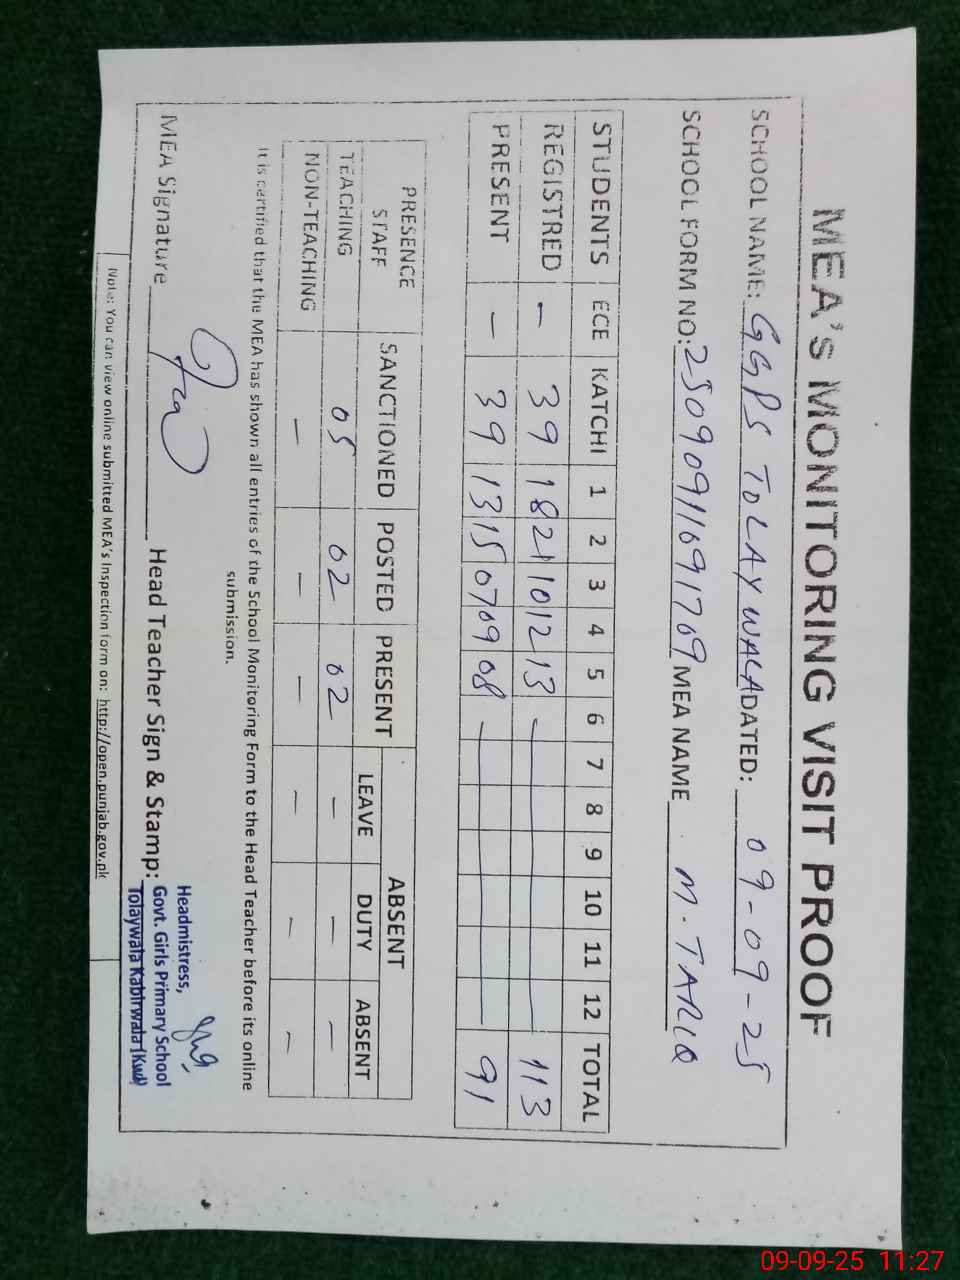 MEA's MONITORING VISIT PROOF
SCHOOL NAME: GGPS TOLAYWALA DATED: 09-09-25
SCHOOL FORM NO: 25090911691709 MEA NAME M. TARIQ
STUDENTS ECE KATCHI 1 2 3 4 5 6 7 8 9 10 11 12 TOTAL
REGISTRED — 39 18 21 10 12 13 — 113
PRESENT — 39 13 15 07 09 08 — 91
PRESENCE STAFF SANCTIONED POSTED PRESENT ABSENT
LEAVE DUTY ABSENT
TEACHING 05 02 02 — — —
NON-TEACHING — — — — — —
It is certified that the MEA has shown all entries of the School Monitoring Form to the Head Teacher before its online
submission.
MEA Signature Head Teacher Sign & Stamp:
Headmistress,
Govt. Girls Primary School
Tolaywala Kabirwala (Kwl)
Note: You can view online submitted MEA's Inspection form on: http://open.punjab.gov.pk
09-09-25 11:27